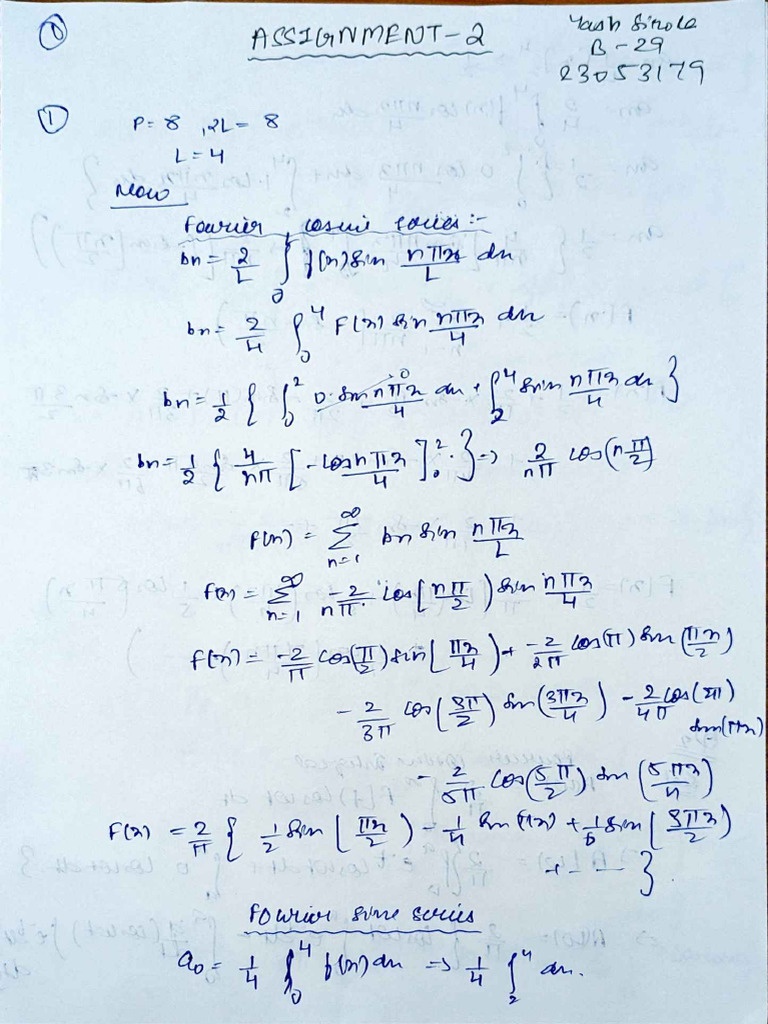 ASSIGNMENT-2
Yash
B-29
23053179
①
P = 8, 2L = 8
L = 4
Now
Fourier cosine series :-
bn = 2/L ∫₀ f(x) sin nπx/L dx
bn = 2/4 ∫₀⁴ F(x) sin nπx/4 dx
bn = 1/2 { ∫₀² 0·sin nπx/4 dx + ∫₂⁴ sin nπx/4 dx }
bn = 1/2 { 4/nπ [-cos nπx/4]₀² · } => 2/nπ cos(nπ/2)
F(x) = ∞Σn=1 bn sin nπx/L
F(x) = ∞Σn=1 -2/nπ · cos(nπ/2) sin nπx/4
F(x) = -2/π cos(π/2) sin(πx/4) + -2/2π cos(π) sin(πx/2)
- 2/3π cos(3π/2) sin(3πx/4) - 2/4π cos(2π) sin(πx)
- 2/5π cos(5π/2) sin(5πx/4)
F(x) = 2/π { 1/2 sin(πx/2) - 1/4 sin(πx) + 1/6 sin(3πx/2)
+ - - - }
Fourier sine series
a₀ = 1/4 ∫₀⁴ f(x) dx => 1/4 ∫₂⁴ dx.